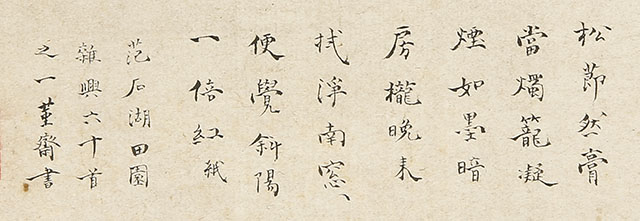 松莭然膏
當燭籠凝
煙如墨暗
房櫳晚来
拭淨南窓
便覺斜陽
一倍紅紙
范石湖田園
雜興六十首
之一堇齋書